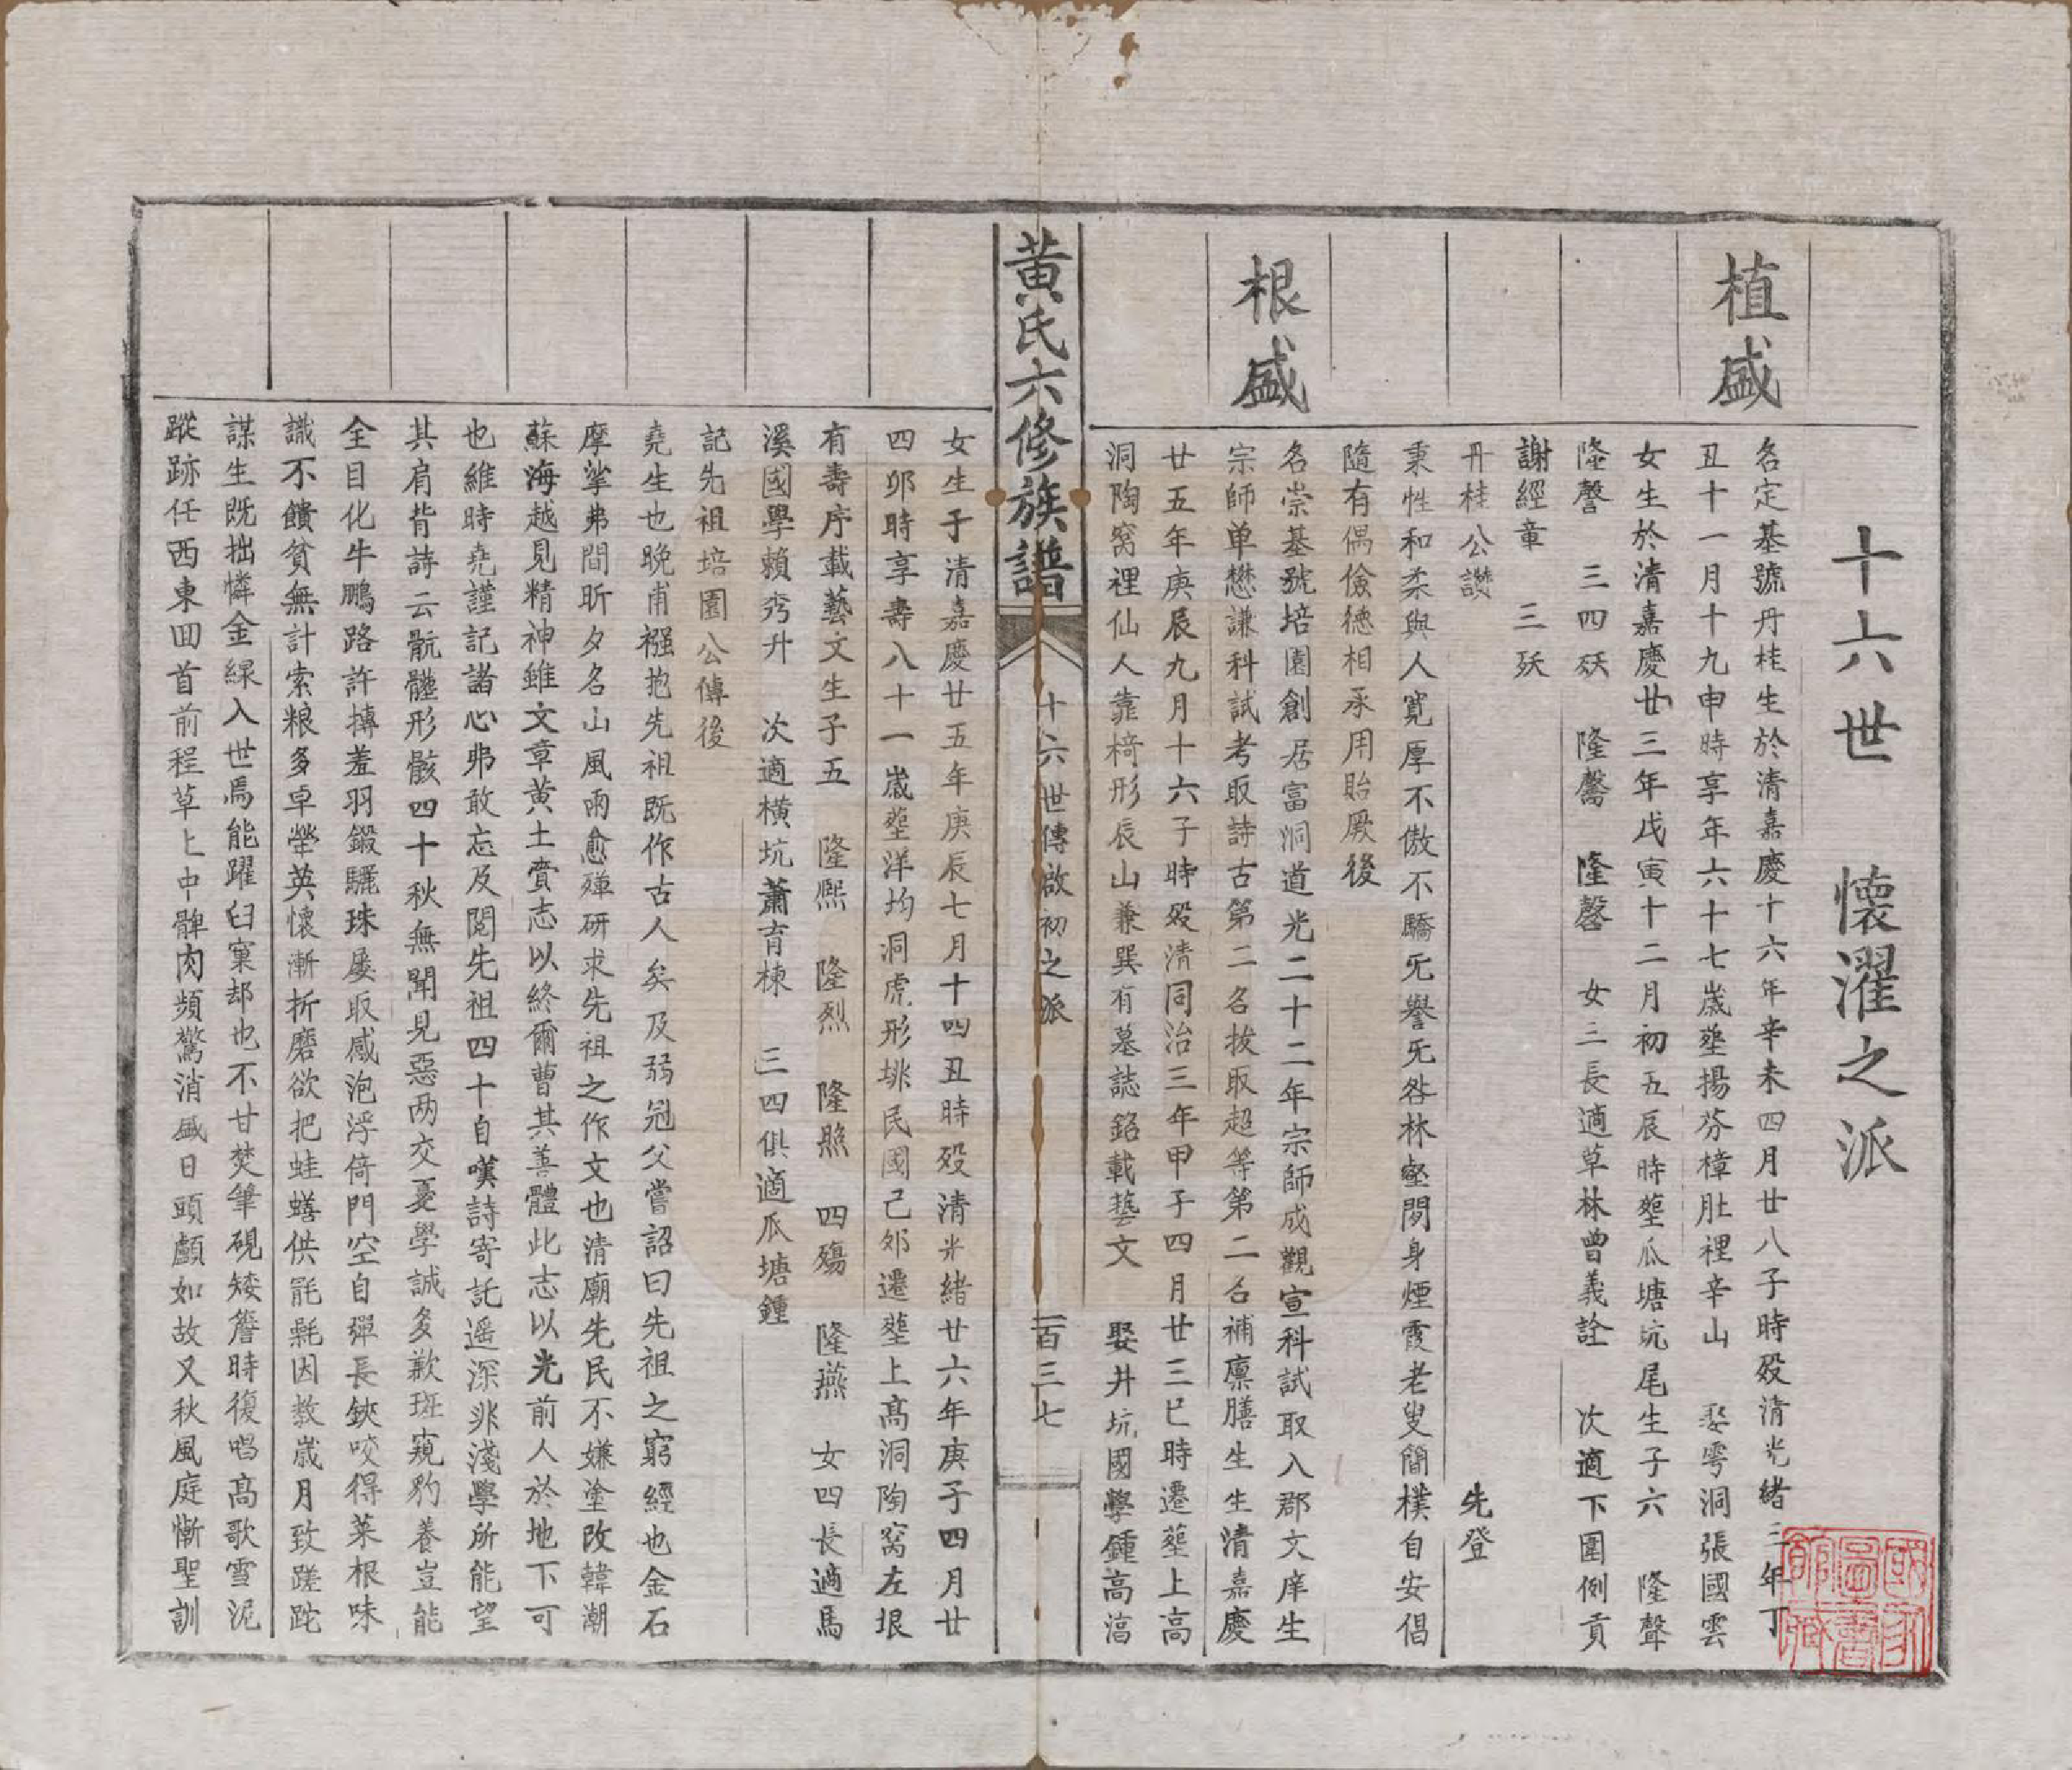 十六世　懷濯之派
植盛
名定基號丹桂生於清嘉慶十六年辛未四月廿八子時殁清光緒三年丁
丑十一月十九申時享年六十七歲塟揚芬樟肚裡辛山　娶雩洞張國雲
女生於清嘉慶廿三年戊寅十二月初五辰時塟瓜塘坑尾生子六　隆聲
隆謦　三四殀　隆鶱　隆磬　女三長適草林曾義詮　次適下圍例貢
謝經章　三殀
丹桂公讚　先登
秉性和柔與人寛厚不傲不驕旡譽旡咎林壑閒身煙霞老叟簡樸自安倡
隨有偶儉德相承用貽厥後
根盛
名崇基號培園創居富洞道光二十二年宗師成觀宣科試取入郡文庠生
宗師单懋謙科試考取詩古第二名拔取超等第二名補廪膳生生清嘉慶
廿五年庚辰九月十六子時殁清同治三年甲子四月廿三巳時遷塟上高
洞陶窩裡仙人靠椅形辰山兼巽有墓誌銘載藝文　娶井坑國學鍾高㴞
黄氏六修族譜
十六世傳啟初之派
一百三七
女生于清嘉慶廿五年庚辰七月十四丑時殁清光緒廿六年庚子四月廿
四卯時享壽八十一歲塟洋均洞虎形排民國己卯遷塟上高洞陶窩左垠
有壽序載藝文生子五　隆熙　隆烈　隆照　四殤　隆燕　女四長適馬
溪國學賴秀升　次適橫坑蕭育棟　三四俱適瓜塘鍾
記先祖培園公傳後
堯生也晚甫襁抱先祖既作古人矣及弱冠父嘗詔曰先祖之窮經也金石
摩挲弗間昕夕名山風雨愈殫研求先祖之作文也清廟先民不嫌塗改韓潮
蘇海越見精神雖文章黄土賫志以終爾曹其善體此志以光前人於地下可
也維時堯謹記諸心弗敢忘及閲先祖四十自嘆詩寄託遥深非淺學所能望
其肩背詩云骯髒形骸四十秋無聞見惡两交憂學誠多歉斑窺豹養豈能
全目化牛鵬路許摶羞羽鎩驪珠屡取感泡浮倚門空自彈長鋏咬得菜根味
識不饋貧無計索粮多卓犖英懷漸折磨欲把蛙蟮供毷氉因教歲月致蹉跎
謀生既拙憐金線入世焉能躍臼窠却也不甘焚筆硯矮簷時復唱高歌雪泥
蹤跡任西東囬首前程草上中髀肉頻驚消盛日頭顱如故又秋風庭慚聖訓